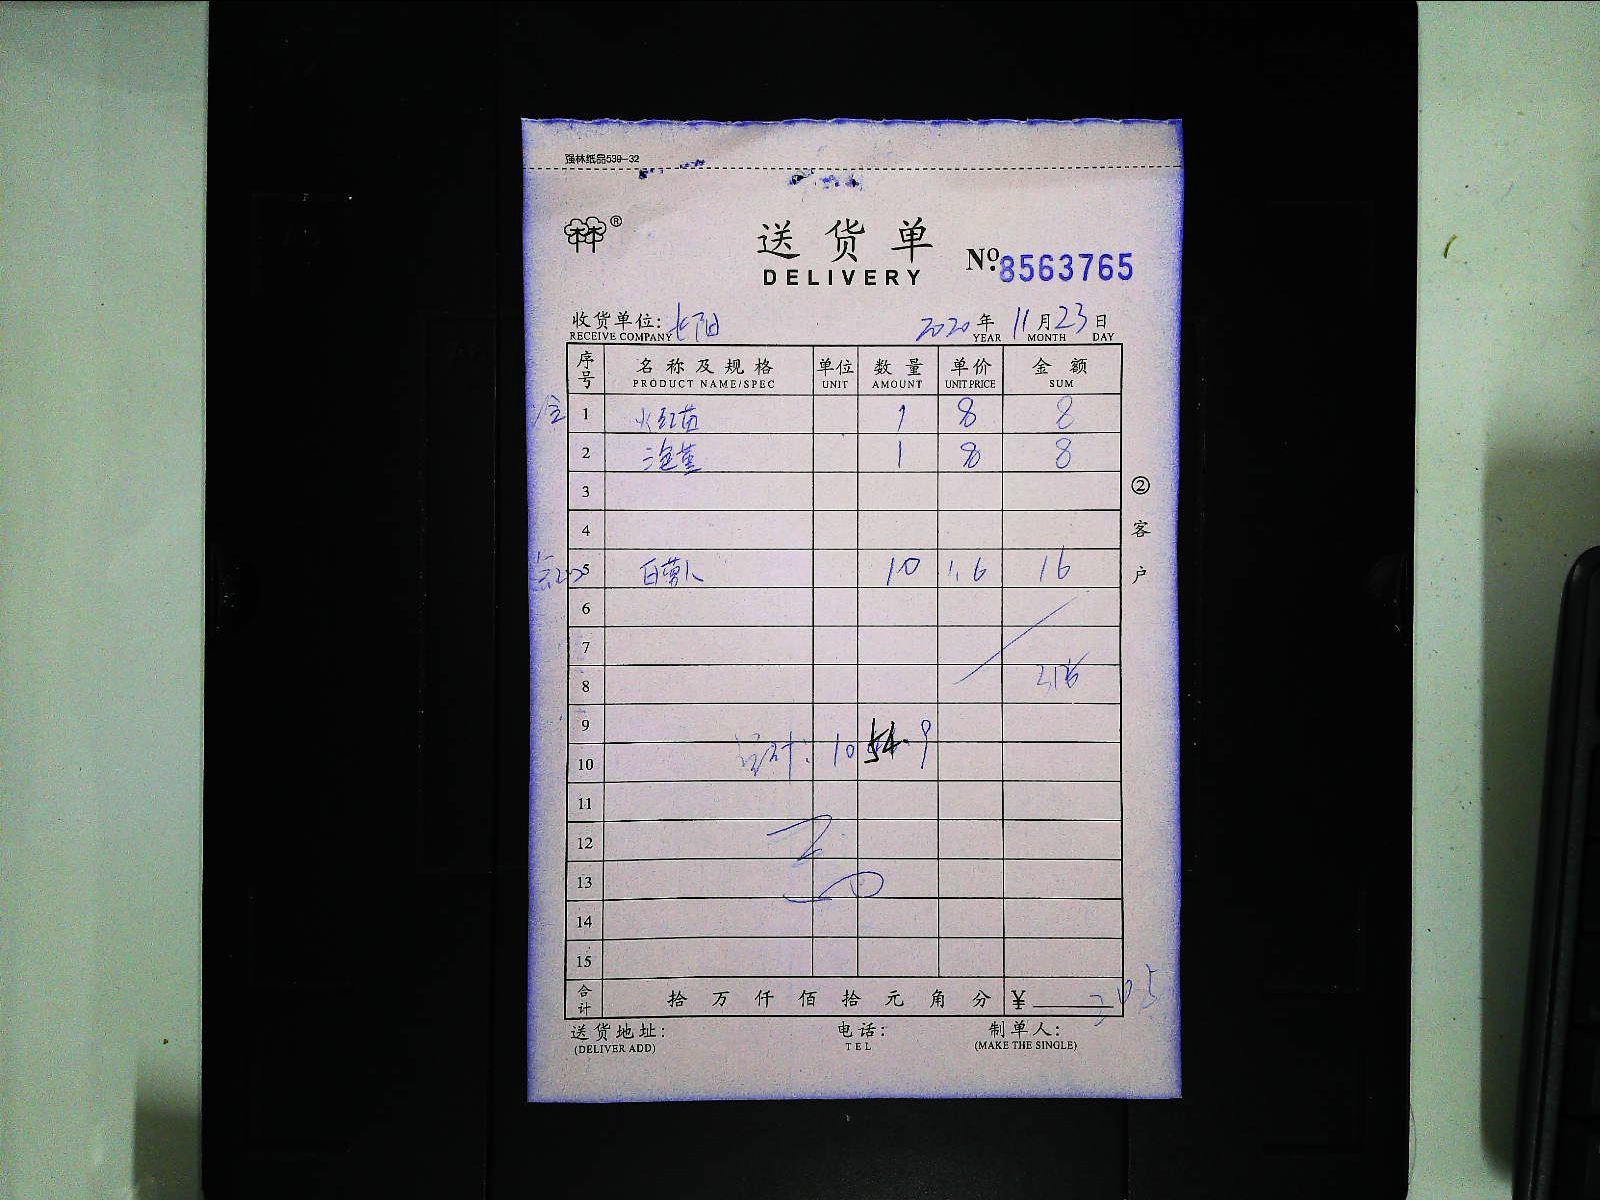 强林纸品539-32
林林®
送货单
DELIVERY
No.8563765
收货单位:长阳
RECEIVE COMPANY
2020年11月23日
YEAR MONTH DAY
序号 名称及规格 单位 数量 单价 金额
PRODUCT NAME/SPEC UNIT AMOUNT UNIT PRICE SUM
1 火红苗 1 8 8
2 1 8 8
3
4
5 白萝卜 10 1.6 16
6
7
8 216
9
10 总计:1054.9
11
12
13
14
15
合计 拾万仟佰拾元角分 ¥
②客户
送货地址: 电话: 制单人:
(DELIVER ADD) TEL (MAKE THE SINGLE)